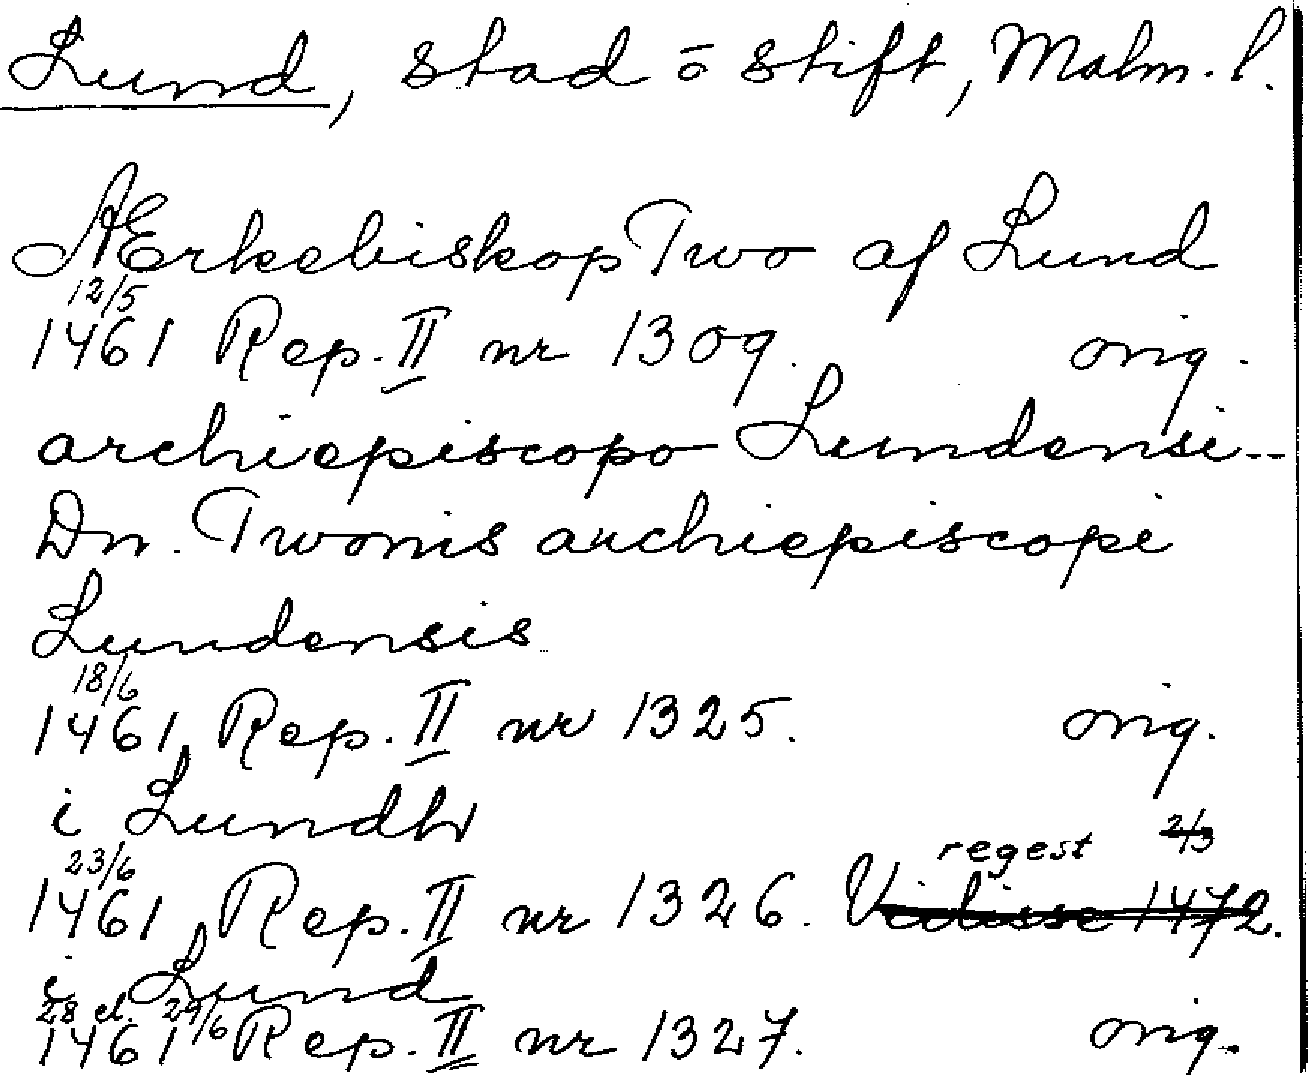 Lund, stad o stift, Malm. l.
Ærkebiskop Two af Lund
12/5
1461 Rep. II nr 1309. orig.
archiepiscopo Lundensi--
Dn. Twonis archiepiscopi
Lundensis
18/6
1461 Rep. II nr 1325. orig.
i Lundh
regest 2/3
23/6
1461 Rep. II nr 1326. Vidisse 1472.
i Lund
28 el. 29/6
1461 Rep. II nr 1327. orig.